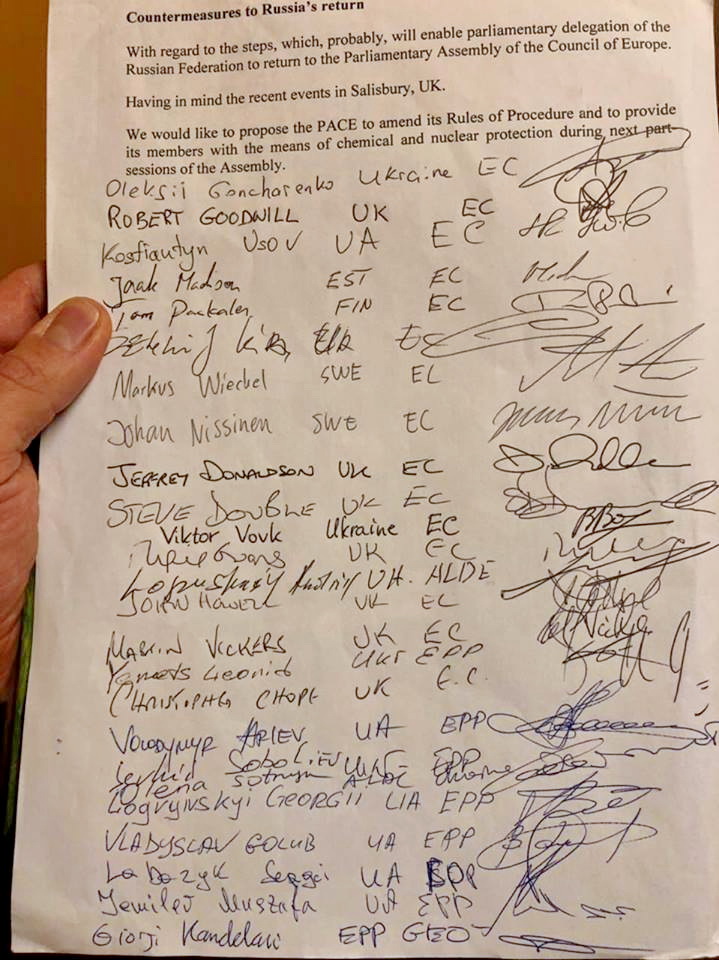 Countermeasures to Russia's return
With regard to the steps, which, probably, will enable parliamentary delegation of the
Russian Federation to return to the Parliamentary Assembly of the Council of Europe.
Having in mind the recent events in Salisbury, UK.
We would like to propose the PACE to amend its Rules of Procedure and to provide
its members with the means of chemical and nuclear protection during next part-
sessions of the Assembly.
Oleksii Goncharenko Ukraine EC
ROBERT GOODWILL UK EC
Kostiantyn Usov UA EC
Jaak Madison EST EC
Tom Packalen FIN EC
EC
Markus Wiechel SWE EC
Johan Nissinen SWE EC
JEFFREY DONALDSON UK EC
STEVE DOUBLE UK EC
Viktor Vovk Ukraine EC
UK EC
ALDE
JOHN HOWELL UK EC
MARTIN VICKERS UK EC
Leonid UKR EPP
CHRISTOPHER CHOPE UK E.C.
VOLODYMYR ARIEV UA EPP
SOBOLIEV EPP
Olena Sotnyk ALDE Ukraine
Logvynskyi GEORGII UA EPP
VLADYSLAV GOLUB UA EPP
Labazyk Sergii UA
Jemilev Mustafa UA EPP
Giorgi Kandelaki EPP GEO